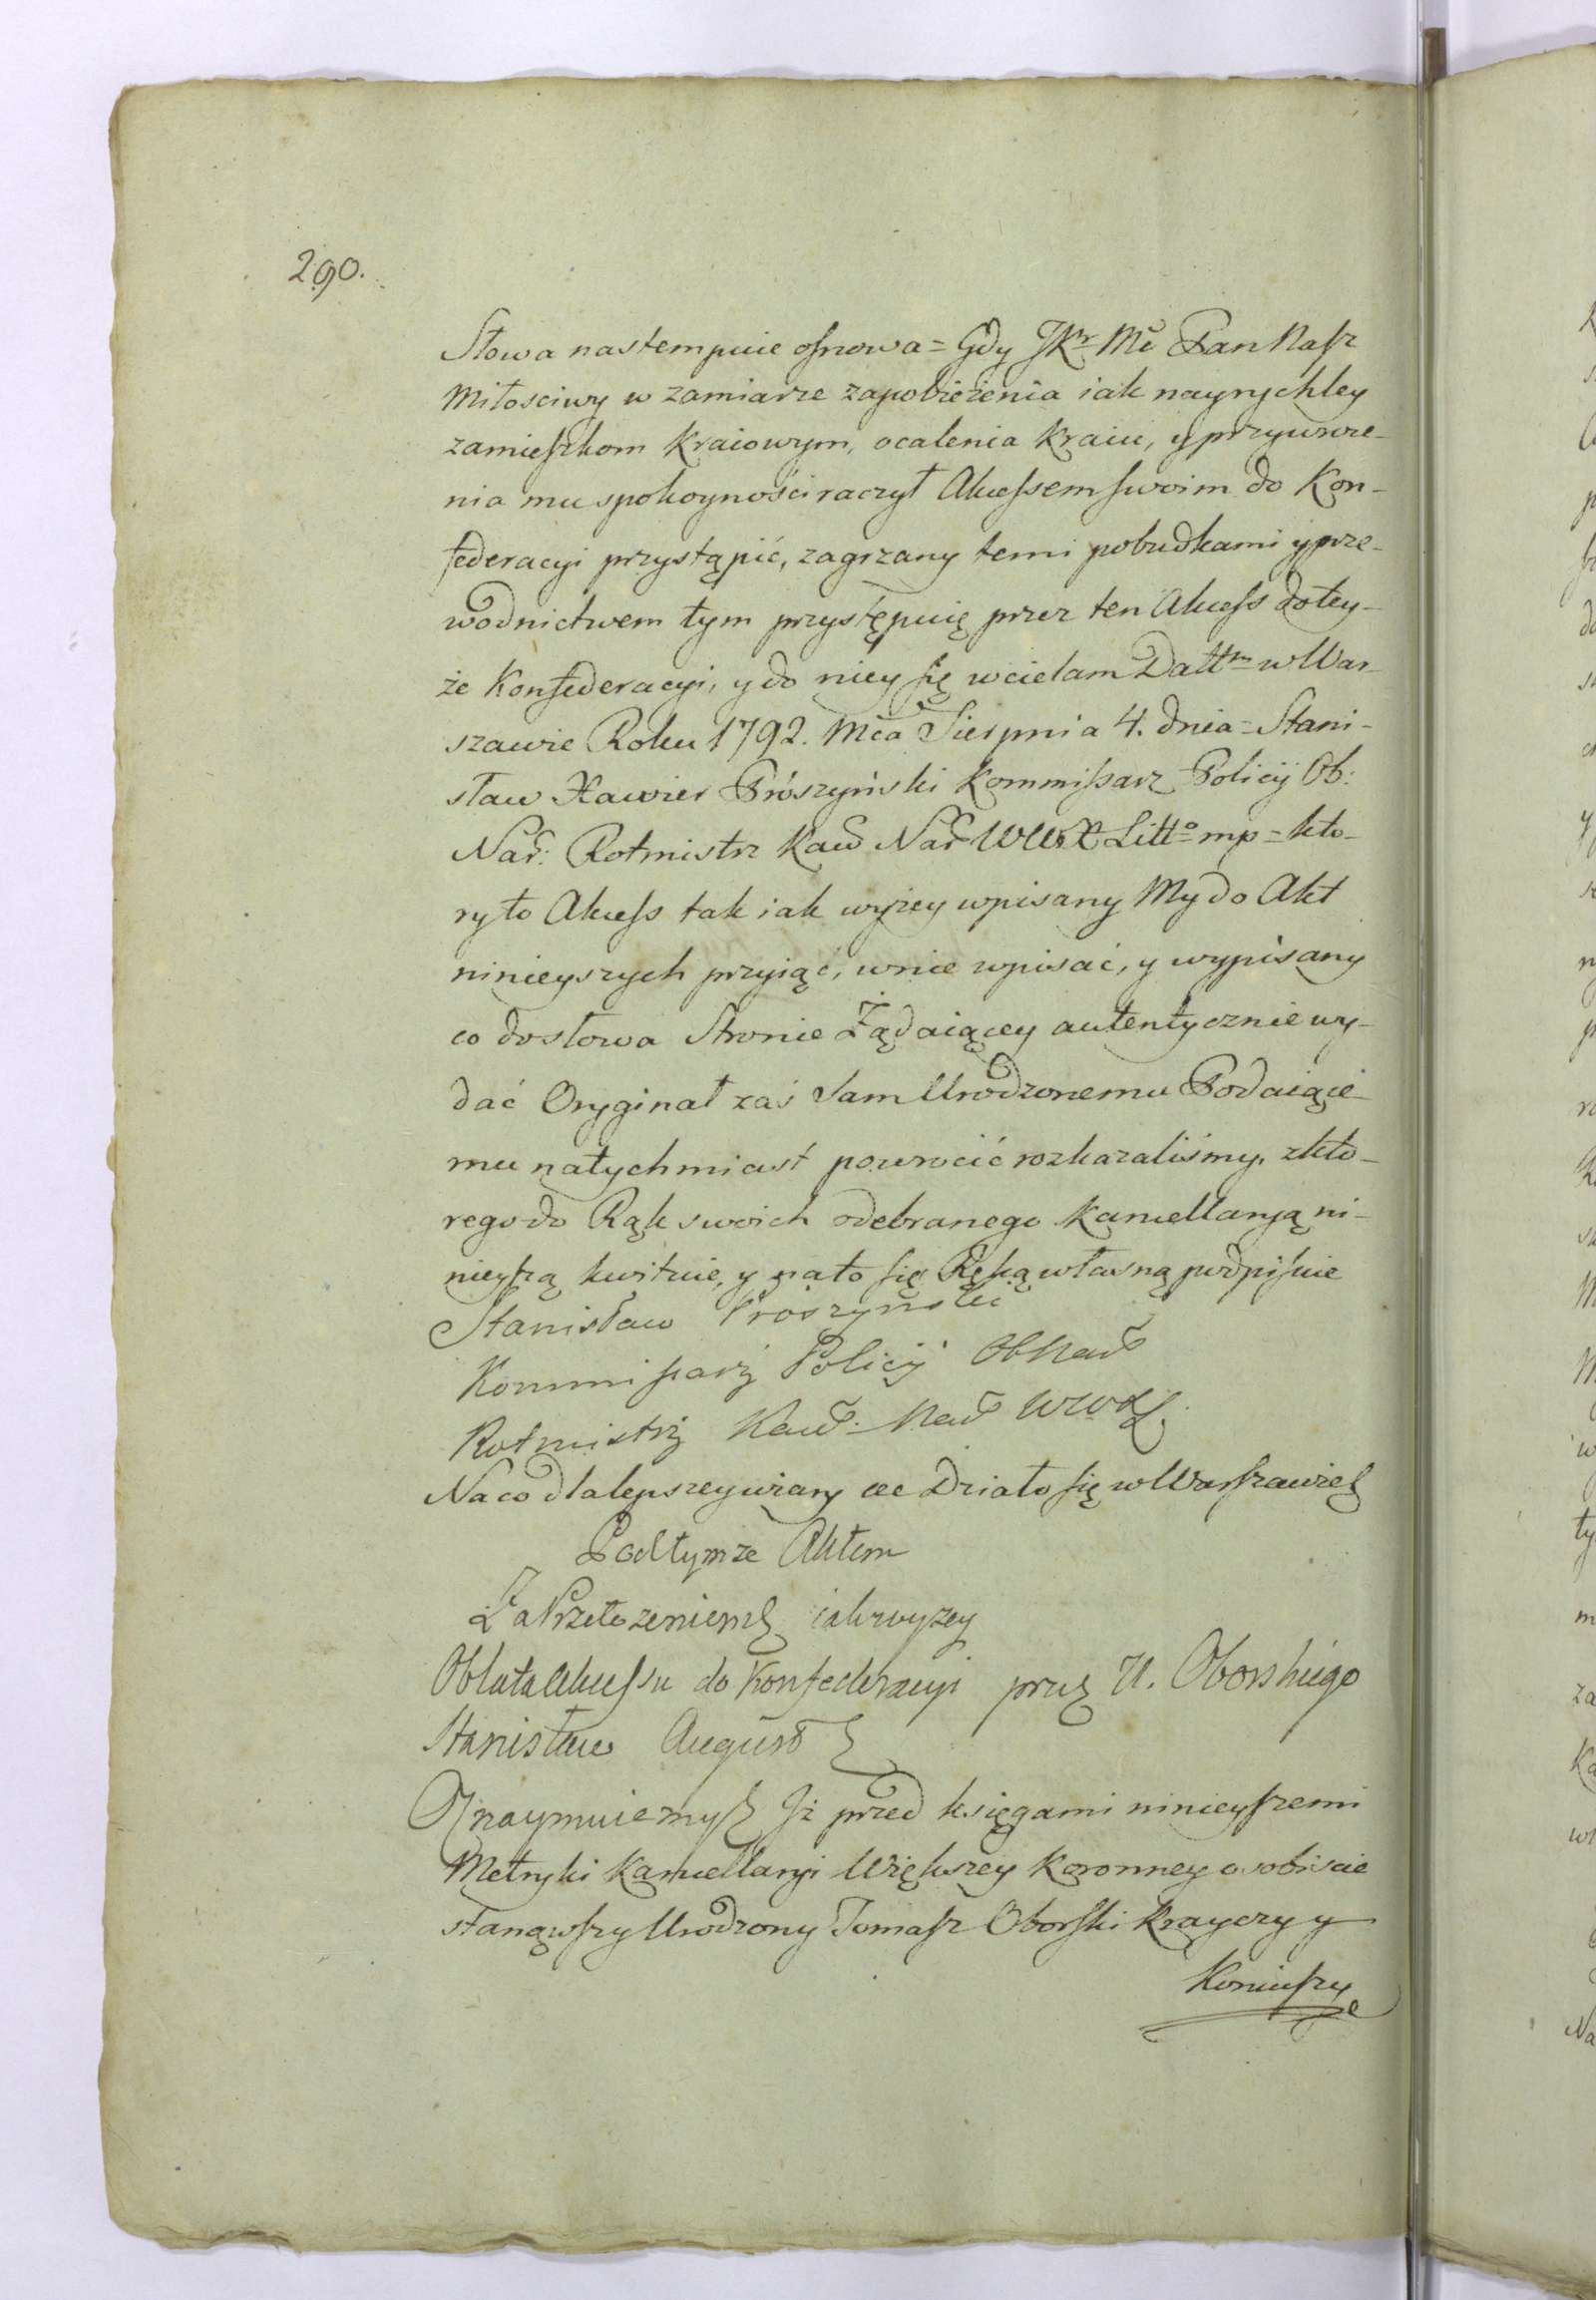 290.
Słowa nastempuie osnowa = Gdy JKr Mć Pan Nasz
Miłosciwy w zamiarze zapobieżenia iak nayrychley
zamieszkom kraiowym, ocalenia kraiu, y przywroce-
nia mu spokoyności raczył Akcessem swoim do Kon-
federacyi przystąpić, zagrzany temi pobudkami y prze-
wodnictwem tym przystępuię przez ten Akcess do tey-
że Konfederacyi, y do niey się wcielam Dattm w War-
szawie Roku 1792. Mca Sierpnia 4. dnia = Stani-
sław Xawier Prószyński Kommissarz Policyi Ob:
Nar: Rotmistrz Kaw Nar WWX Litto mp = kto-
ry to Akcess tak iak wyżey wpisany My do Akt
ninieyszych przyiąć, w nie wpisać, y wypisany
co do słowa Stronie Żądaiącey autentycznie wy-
dać Oryginał zaś Sam Urodzonemu Podaiące-
mu natychmiast powrocić rozkazaliśmy, z kto-
rego do Rąk swoich odebranego Kancellaryą ni-
nieyszą kwituie, y na to się Ręką własną podpisuie
Stanisław Prószyński
Kommissarz Policyi Ob Nar
Rotmistrz Kaw. Nar WWXL
Na co dla lepszey wiary etc Działo się w Warszawie
Pod tymze Aktem
Za Przełozeniem iak wyzey
Oblata Akcessu do Konfederacyi przez U. Oborskiego
Stanisław August
Oznaymuiemy Iż przed księgami ninieyszemi
Metryki Kancellaryi Większey Koronney osobiscie
stanąwszy Urodzony Tomasz Oborski Krayczy y
Koniuszy